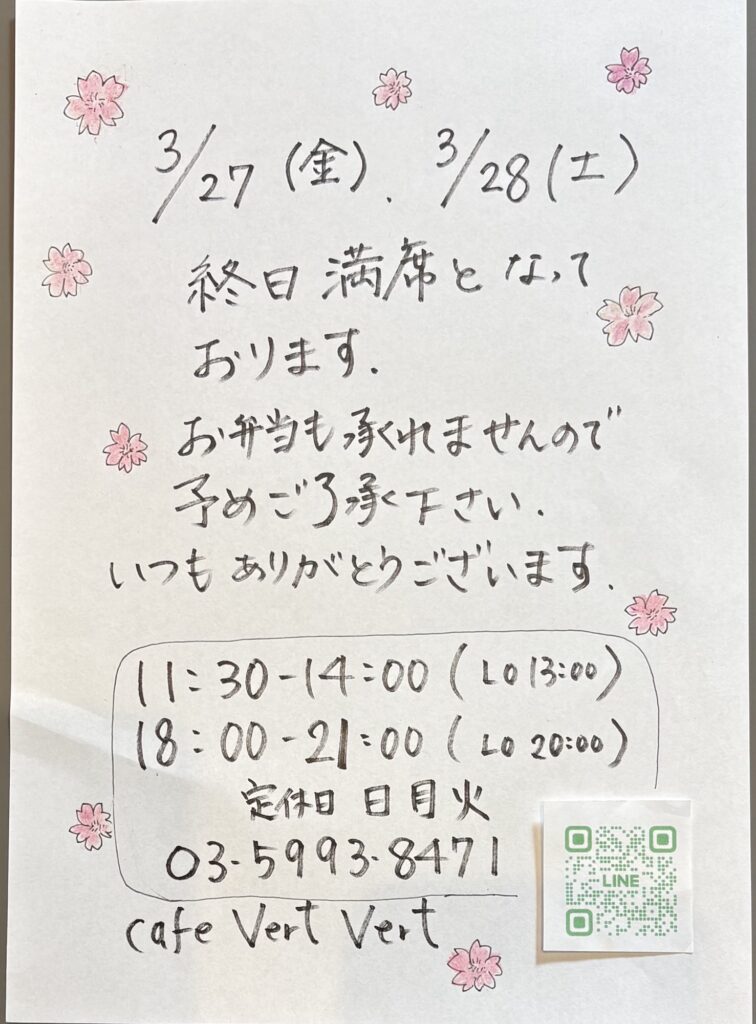 3/27(金). 3/28(土)
終日 満席となって
おります.
お弁当も承くれませんので
予めご了承く下さい.
いつもありがとうございます.
11:30-14:00 (LO 13:00)
18:00-21:00 (LO 20:00)
定休日 日月火
03-5993-8471
LINE
cafe Vert Vert